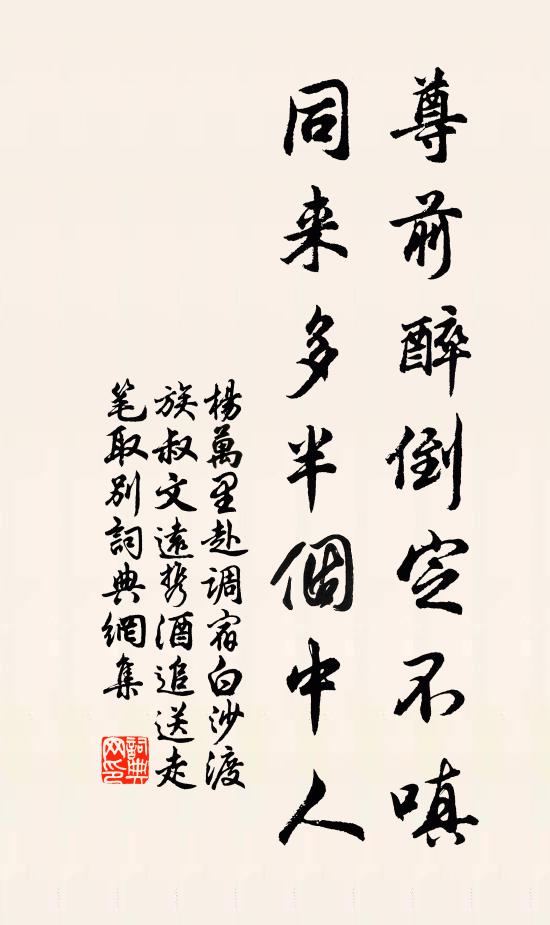 尊前醉倒定不嗔
同来多半個中人
楊萬里赴调宿白沙渡
族叔文遠携酒追送走
笔取别詞典網集
詞典
网印